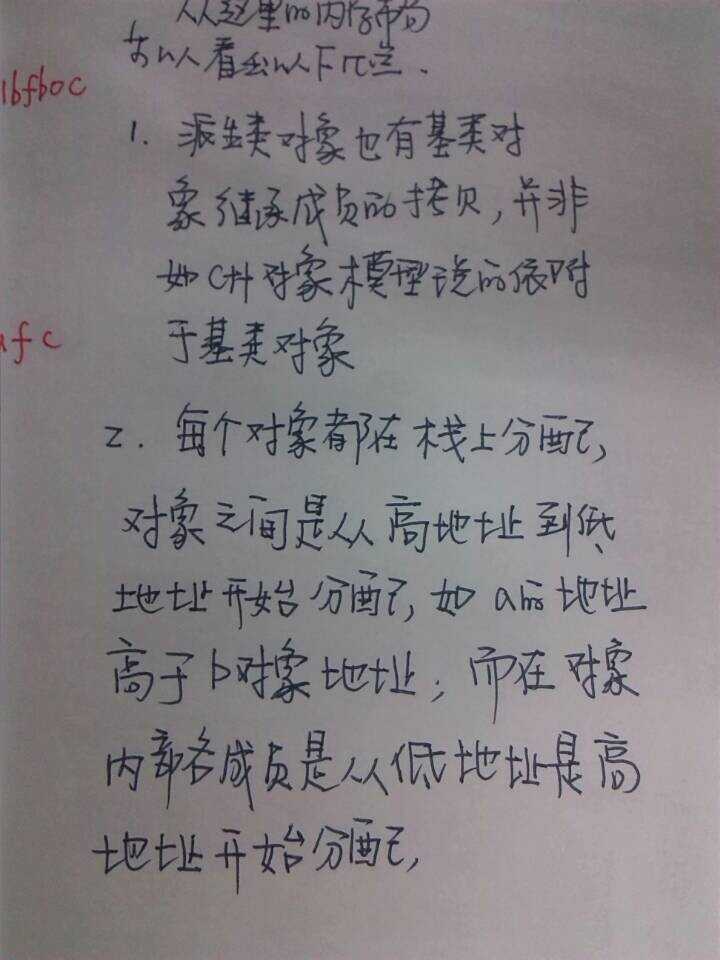 从这里的内存布局
可以看出以下几点.
1bfb0c
1. 派生类对象也有基类对
象继承成员的拷贝,并非
如C++对象模型说的依附
于基类对象
afc
2. 每个对象都在栈上分配,
对象之间是从高地址到低
地址开始分配,如a的地址
高于b对象地址;而在对象
内部各成员是从低地址是高
地址开始分配,